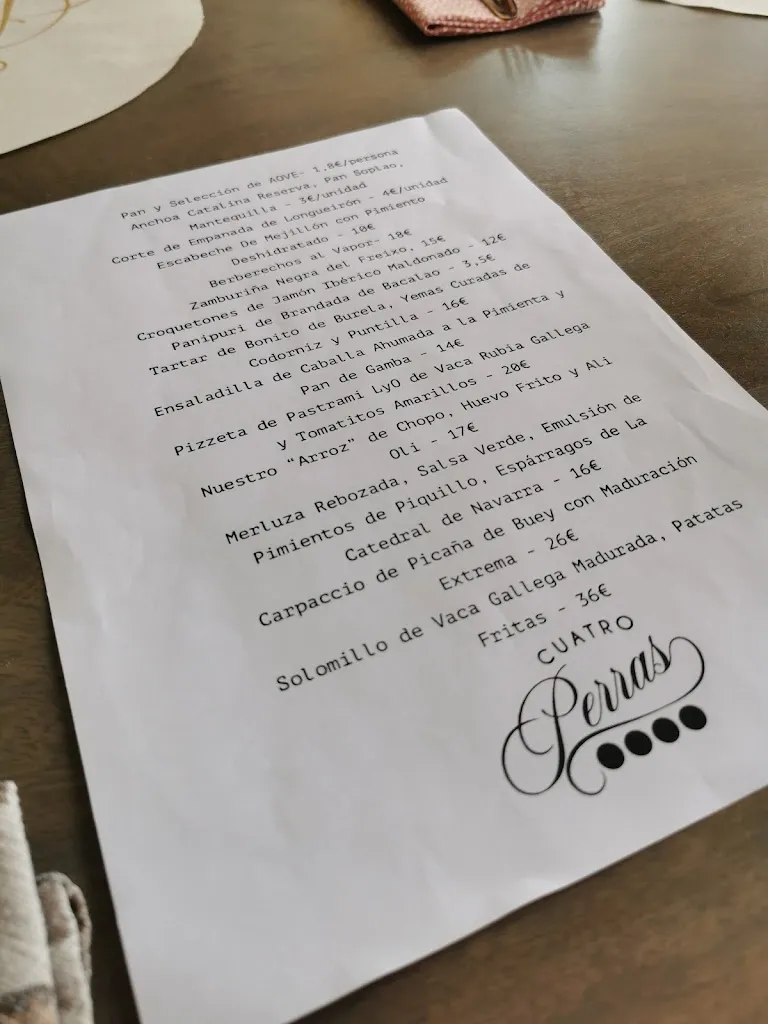 Pan y Selección de AOVE- 1,8€/persona
Anchoa Catalina Reserva, Pan Soplao,
Mantequilla - 3€/unidad
Corte de Empanada de Longueirón - 4€/unidad
Escabeche De Mejillón con Pimiento
Deshidratado - 10€
Berberechos al Vapor- 18€
Zamburiña Negra del Freixo, 15€
Croquetones de Jamón Ibérico Maldonado - 12€
Panipuri de Brandada de Bacalao - 3,5€
Tartar de Bonito de Burela, Yemas Curadas de
Codorniz y Puntilla - 16€
Ensaladilla de Caballa Ahumada a la Pimienta y
Pan de Gamba - 14€
Pizzeta de Pastrami LyO de Vaca Rubia Gallega
y Tomatitos Amarillos - 20€
Nuestro "Arroz" de Chopo, Huevo Frito y Ali
Oli - 17€
Merluza Rebozada, Salsa Verde, Emulsión de
Pimientos de Piquillo, Espárragos de La
Catedral de Navarra - 16€
Carpaccio de Picaña de Buey con Maduración
Extrema - 26€
Solomillo de Vaca Gallega Madurada, Patatas
Fritas - 36€
CUATRO
Perras